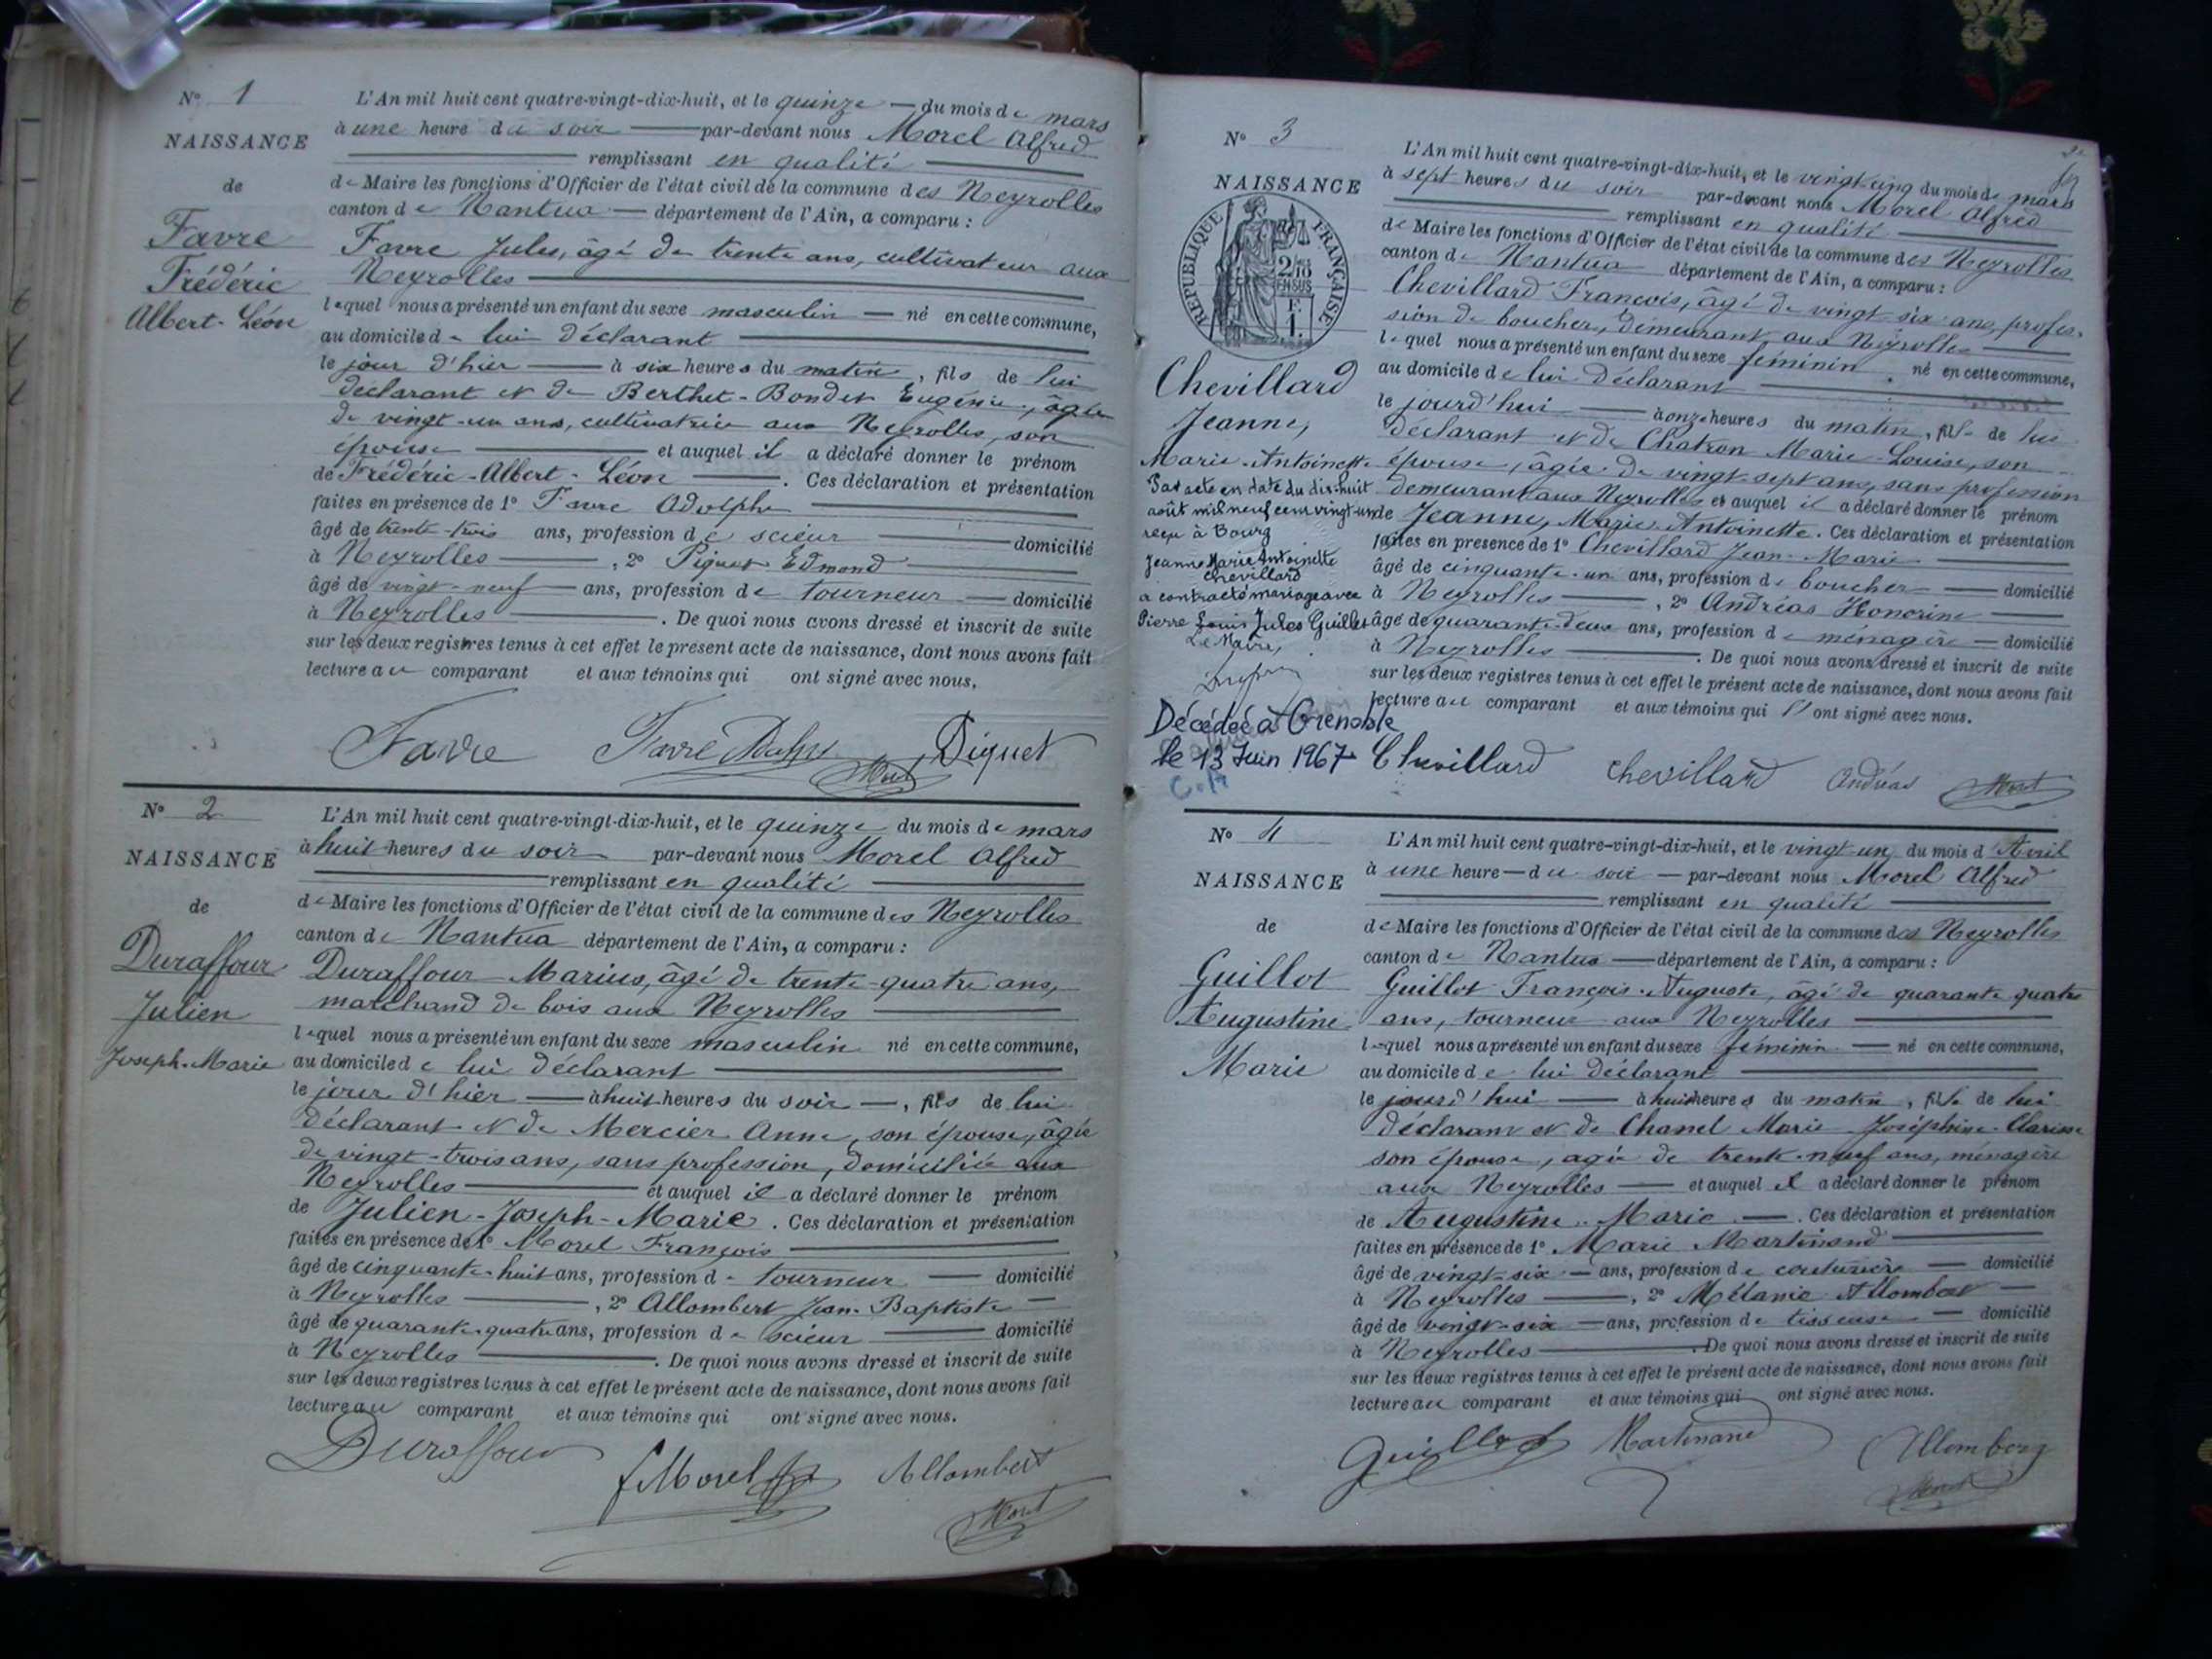 N° 1
NAISSANCE
de
Favre
Frédéric
Albert-Léon
L'An mil huit cent quatre-vingt-dix-huit, et le quinze — du mois de mars
à une heure du soir — par-devant nous Morel Alfred
remplissant en qualité
de Maire les fonctions d'Officier de l'état civil de la commune des Neyrolles
canton de Nantua — département de l'Ain, a comparu :
Favre Jules, âgé de trente ans, cultivateur aux
Neyrolles
lequel nous a présenté un enfant du sexe masculin — né en cette commune,
au domicile de lui déclarant
le jour d'hier — à six heures du matin, fils de lui
déclarant et de Berthet-Bondet Eugénie, âgée
de vingt-un ans, cultivatrice aux Neyrolles, son
épouse — et auquel il a déclaré donner le prénom
de Frédéric-Albert-Léon — . Ces déclaration et présentation
faites en présence de 1° Favre Adolphe
âgé de trente-trois ans, profession de scieur — domicilié
à Neyrolles — , 2° Piquet Edmond
âgé de vingt-neuf — ans, profession de tourneur — domicilié
à Neyrolles — . De quoi nous avons dressé et inscrit de suite
sur les deux registres tenus à cet effet le présent acte de naissance, dont nous avons fait
lecture au comparant et aux témoins qui ont signé avec nous.
Favre Favre Adolphe Morel Piquet
N° 2
NAISSANCE
de
Duraffour
Julien
Joseph-Marie
L'An mil huit cent quatre-vingt-dix-huit, et le quinze du mois de mars
à huit heures du soir par-devant nous Morel Alfred
remplissant en qualité
de Maire les fonctions d'Officier de l'état civil de la commune des Neyrolles
canton de Nantua département de l'Ain, a comparu :
Duraffour Marius, âgé de trente-quatre ans,
marchand de bois aux Neyrolles
lequel nous a présenté un enfant du sexe masculin né en cette commune,
au domicile de lui déclarant
le jour d'hier — à huit heures du soir —, fils de lui
déclarant et de Mercier Anne, son épouse, âgée
de vingt-trois ans, sans profession, domiciliée aux
Neyrolles — et auquel il a déclaré donner le prénom
de Julien-Joseph-Marie . Ces déclaration et présentation
faites en présence de 1° Morel François
âgé de cinquante-huit ans, profession de tourneur — domicilié
à Neyrolles — , 2° Allombert Jean-Baptiste —
âgé de quarante-quatre ans, profession de scieur — domicilié
à Neyrolles — . De quoi nous avons dressé et inscrit de suite
sur les deux registres tenus à cet effet le présent acte de naissance, dont nous avons fait
lecture au comparant et aux témoins qui ont signé avec nous.
Duraffour f Morel Allombert
Morel
N° 3
NAISSANCE
REPUBLIQUE FRANÇAISE
2/10 EN SUS
Chevillard
Jeanne,
Marie-Antoinette
Par acte en date du dix-huit
août mil neuf cent vingt-un
reçu à Bourg
Jeanne Marie Antoinette
Chevillard
a contracté mariage avec
Pierre Louis Jules Guillet
Le Maire,
Décédée à Grenoble
le 13 Juin 1967
L'An mil huit cent quatre-vingt-dix-huit, et le vingt-cinq du mois de mars
à sept heures du soir par-devant nous Morel Alfred
remplissant en qualité
de Maire les fonctions d'Officier de l'état civil de la commune des Neyrolles
canton de Nantua département de l'Ain, a comparu :
Chevillard François, âgé de vingt-six ans, profes-
sion de boucher, demeurant aux Neyrolles
lequel nous a présenté un enfant du sexe féminin né en cette commune,
au domicile de lui déclarant
le jourd'hui — à onze heures du matin, fille de lui
déclarant et de Chatron Marie-Louise, son
épouse, âgée de vingt-sept ans, sans profession
demeurant aux Neyrolles et auquel il a déclaré donner le prénom
de Jeanne, Marie-Antoinette. Ces déclaration et présentation
faites en présence de 1° Chevillard Jean-Marie
âgé de cinquante-un ans, profession de boucher — domicilié
à Neyrolles — , 2° Andréas Honorine
âgé de quarante-deux ans, profession de ménagère — domicilié
à Neyrolles — . De quoi nous avons dressé et inscrit de suite
sur les deux registres tenus à cet effet le présent acte de naissance, dont nous avons fait
lecture au comparant et aux témoins qui ont signé avec nous.
Chevillard Chevillard Andréas Morel
N° 4
NAISSANCE
de
Guillot
Augustine
Marie
L'An mil huit cent quatre-vingt-dix-huit, et le vingt-un du mois d'Avril
à une heure — du soir — par-devant nous Morel Alfred
remplissant en qualité
de Maire les fonctions d'Officier de l'état civil de la commune des Neyrolles
canton de Nantua — département de l'Ain, a comparu :
Guillot François-Auguste, âgé de quarante quatre
ans, tourneur aux Neyrolles
lequel nous a présenté un enfant du sexe féminin — né en cette commune,
au domicile de lui déclarant
le jourd'hui — à huit heures du matin, fille de lui
déclarant et de Chanel Marie-Joséphine-Clarisse
son épouse, agée de trente-neuf ans, ménagère
aux Neyrolles — et auquel il a déclaré donner le prénom
de Augustine-Marie — . Ces déclaration et présentation
faites en présence de 1° Marie Martinand
âgé de vingt-six — ans, profession de couturière — domicilié
à Neyrolles — , 2° Mélanie Allombert —
âgé de vingt-six — ans, profession de tisseuse — domicilié
à Neyrolles — . De quoi nous avons dressé et inscrit de suite
sur les deux registres tenus à cet effet le présent acte de naissance, dont nous avons fait
lecture au comparant et aux témoins qui ont signé avec nous.
Guillot Martinand Allombert
Morel